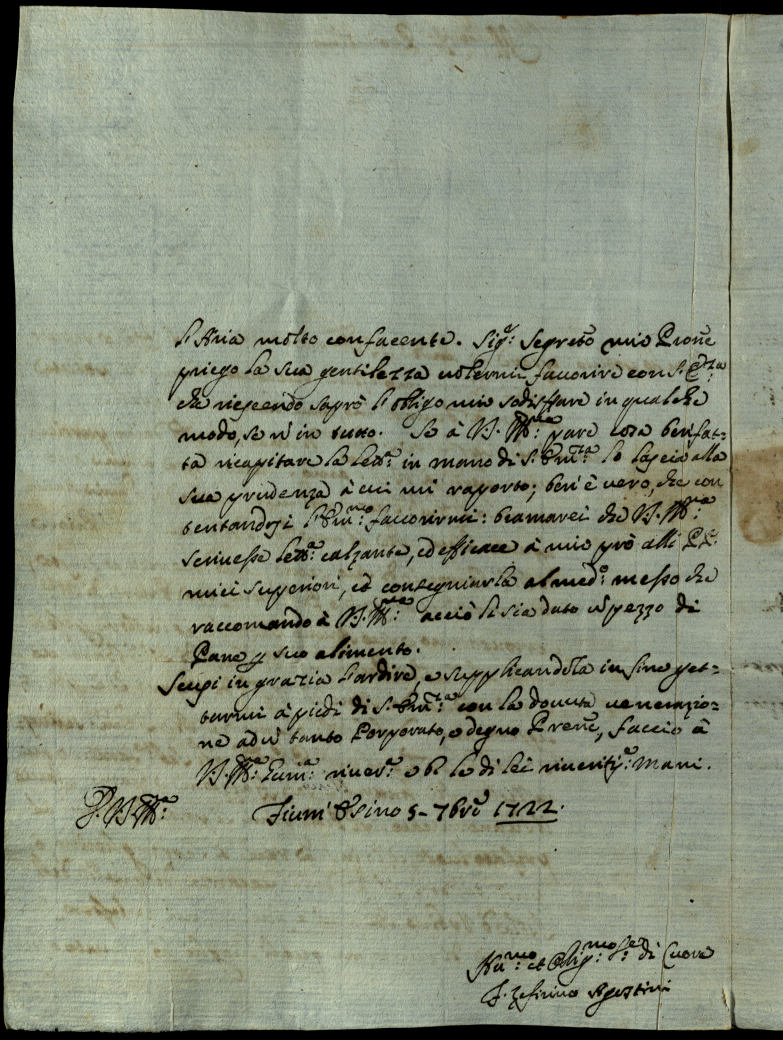 l'Aria molto confacente. Sig.r Segret.o mio Pron̄e
priego la sua gentilezza volermi favorire con S. E.za
che riescendo saprò l'obligo mio sodisfare in qualche
modo, se nō in tutto. Se à V.S. Ill.ma pare cosa ben fat=
ta ricapitare la lett.a in mano di S. Em.za lo lascio alla
sua prudenza à cui mi raporto; ben'è vero, che con
tentandosi l'Em.mo favorirmi: bramarei che V.S. Ill.ma
scrivesse lett.a calzante, ed efficace à mio prò alli PP.
miei superiori, et consegniarla al med.o messo che
raccomando à V.S. Ill.ma acciò li sia dato ū pezzo di
Pane p suo alimento.
Scusi in grazia l'ardire, e supplicandola in fine get=
tarmi à piedi di S. Em.za con la dovuta venerazio=
ne ad ū tanto Porporato, e degno Prenc̄e, faccio à
V.S. Ill.ma hum.a river.a e b le di lei riverit.e Mani.
D. V.S. Ill.ma Fium' Esino 5 - 7bre 1722.
Hu.mo et Oblig.mo Se.r di Cuore
F. Zefirino Agostini